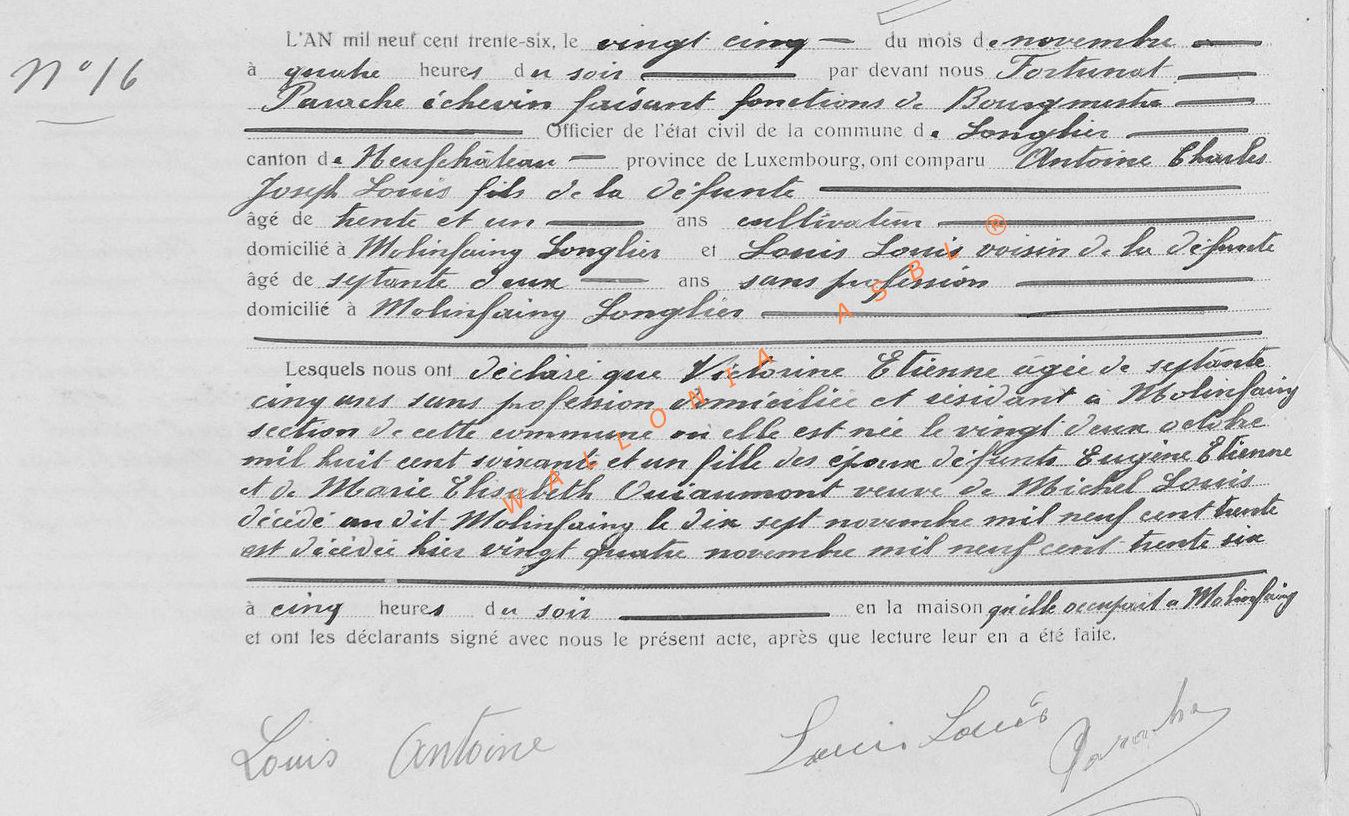 N° 16
L'AN mil neuf cent trente-six, le vingt cinq du mois de novembre
à quatre heures du soir par devant nous Fortunat
Parache échevin faisant fonctions de Bourgmestre
Officier de l'état civil de la commune de Longlier
canton de Neufchâteau province de Luxembourg, ont comparu Antoine Charles
Joseph Louis fils de la défunte
âgé de trente et un ans cultivateur
domicilié à Molinfaing Longlier et Louis Louis voisin de la défunte
âgé de septante deux ans sans profession
domicilié à Molinfaing Longlier
Lesquels nous ont déclaré que Victorine Etienne agée de septante
cinq ans sans profession domiciliée et résidant à Molinfaing
section de cette commune où elle est née le vingt deux octobre
mil huit cent soixante et un fille des époux défunts Eugène Etienne
et de Marie Elisabeth Ouiaumont veuve de Michel Louis
décédé au dit Molinfaing le dix sept novembre mil neuf cent trente
est décédée hier vingt quatre novembre mil neuf cent trente six
à cinq heures du soir en la maison qu'elle occupait à Molinfaing
et ont les déclarants signé avec nous le présent acte, après que lecture leur en a été faite.
Louis Antoine Louis Louis Parache
WALLONIA ASBL ®